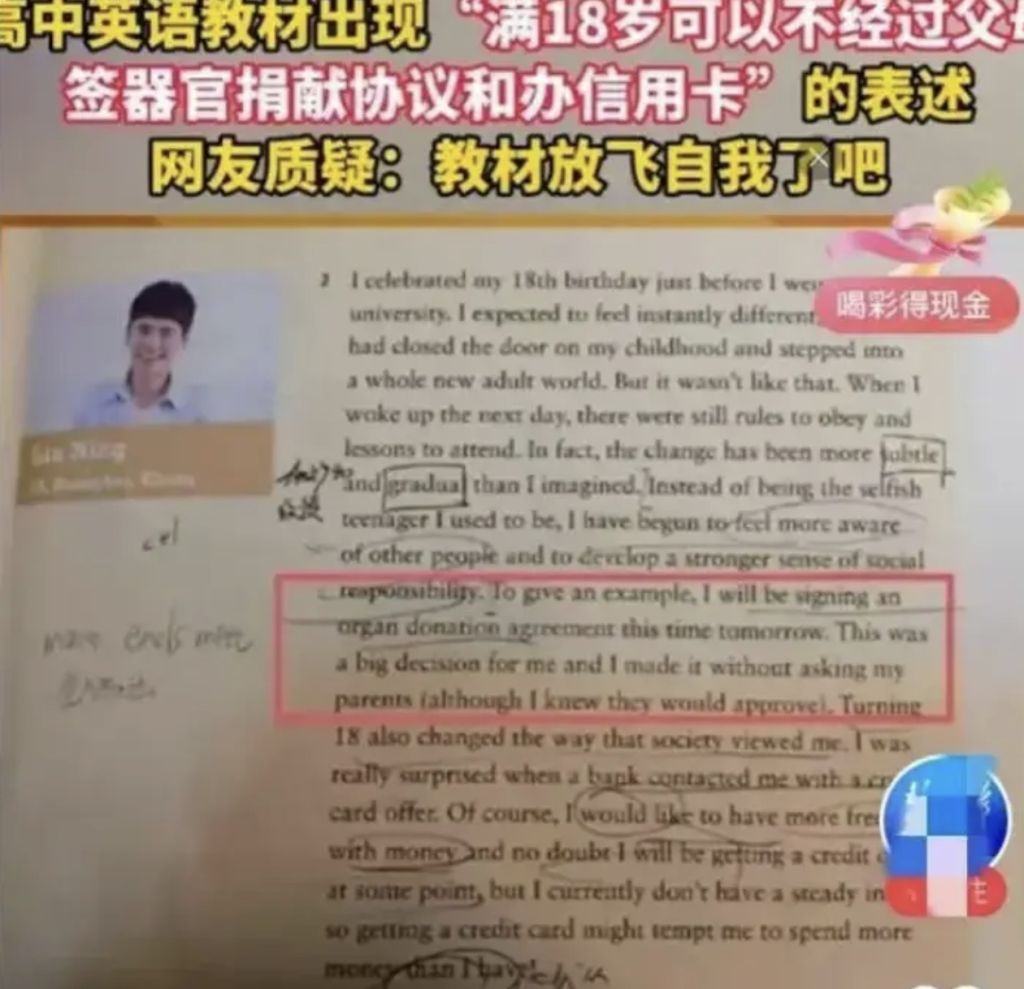 高中英语教材出现“满18岁可以不经过父母
签器官捐献协议和办信用卡”的表述
网友质疑：教材放飞自我了吧
喝彩得现金
2 I celebrated my 18th birthday just before I
university. I expected to feel instantly different,
had closed the door on my childhood and stepped into
a whole new adult world. But it wasn't like that. When I
woke up the next day, there were still rules to obey and
lessons to attend. In fact, the change has been more subtle
and gradual than I imagined. Instead of being the selfish
teenager I used to be, I have begun to feel more aware
of other people and to develop a stronger sense of social
responsibility. To give an example, I will be signing an
organ donation agreement this time tomorrow. This was
a big decision for me and I made it without asking my
parents (although I knew they would approve). Turning
18 also changed the way that society viewed me. I was
really surprised when a bank contacted me with a
card offer. Of course, I would like to have more
with money and no doubt I will be getting a credit
at some point, but I currently don't have a steady
so getting a credit card might tempt me to spend more
money than I have!
Liu Ning
China
make ends meet